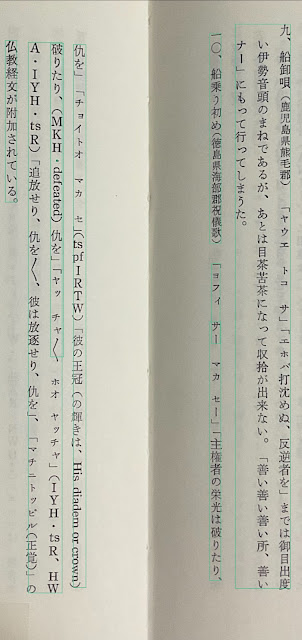 九、船卸唄（鹿児島県熊毛郡）「ヤウエ　トコ　サ」「エホバ打沈めぬ、反逆者を」までは御目出度
い伊勢音頭のまねであるが、あとは目茶苦茶になって収拾が出来ない。「善い善い善い所、善い
ナー」にもって行ってしまうた。
一〇、船乗り初め（徳島県海部郡祝儀歌）「ヨフィ　サー　マカ　セー」「主権者の栄光は破りたり、
仇を」「チョイトオ　マカ　セ」（tspf IRTW）「彼の王冠（の輝きは、His diadem or crown）
破りたり、（MKH・defeated）仇を」「ヤッ　チャ〱　ホオ　ヤッチャ」（IYH・tsR, HW
A・IYH・tsR）「追放せり、仇を〱、彼は放逐せり、仇を」、「マチニトッピル（正覚）」の
仏教経文が附加されている。